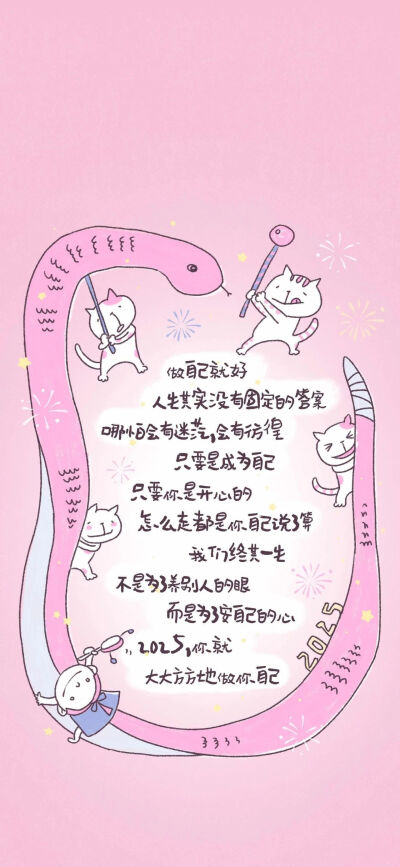 做自己就好
人生其实没有固定的答案
哪怕会有迷茫,会有彷徨
只要是成为自己
只要你是开心的
怎么走都是你自己说了算
我们终其一生
不是为了养别人的眼
而是为了安自己的心
,, 2025,你就
大大方方地做你自己
2025